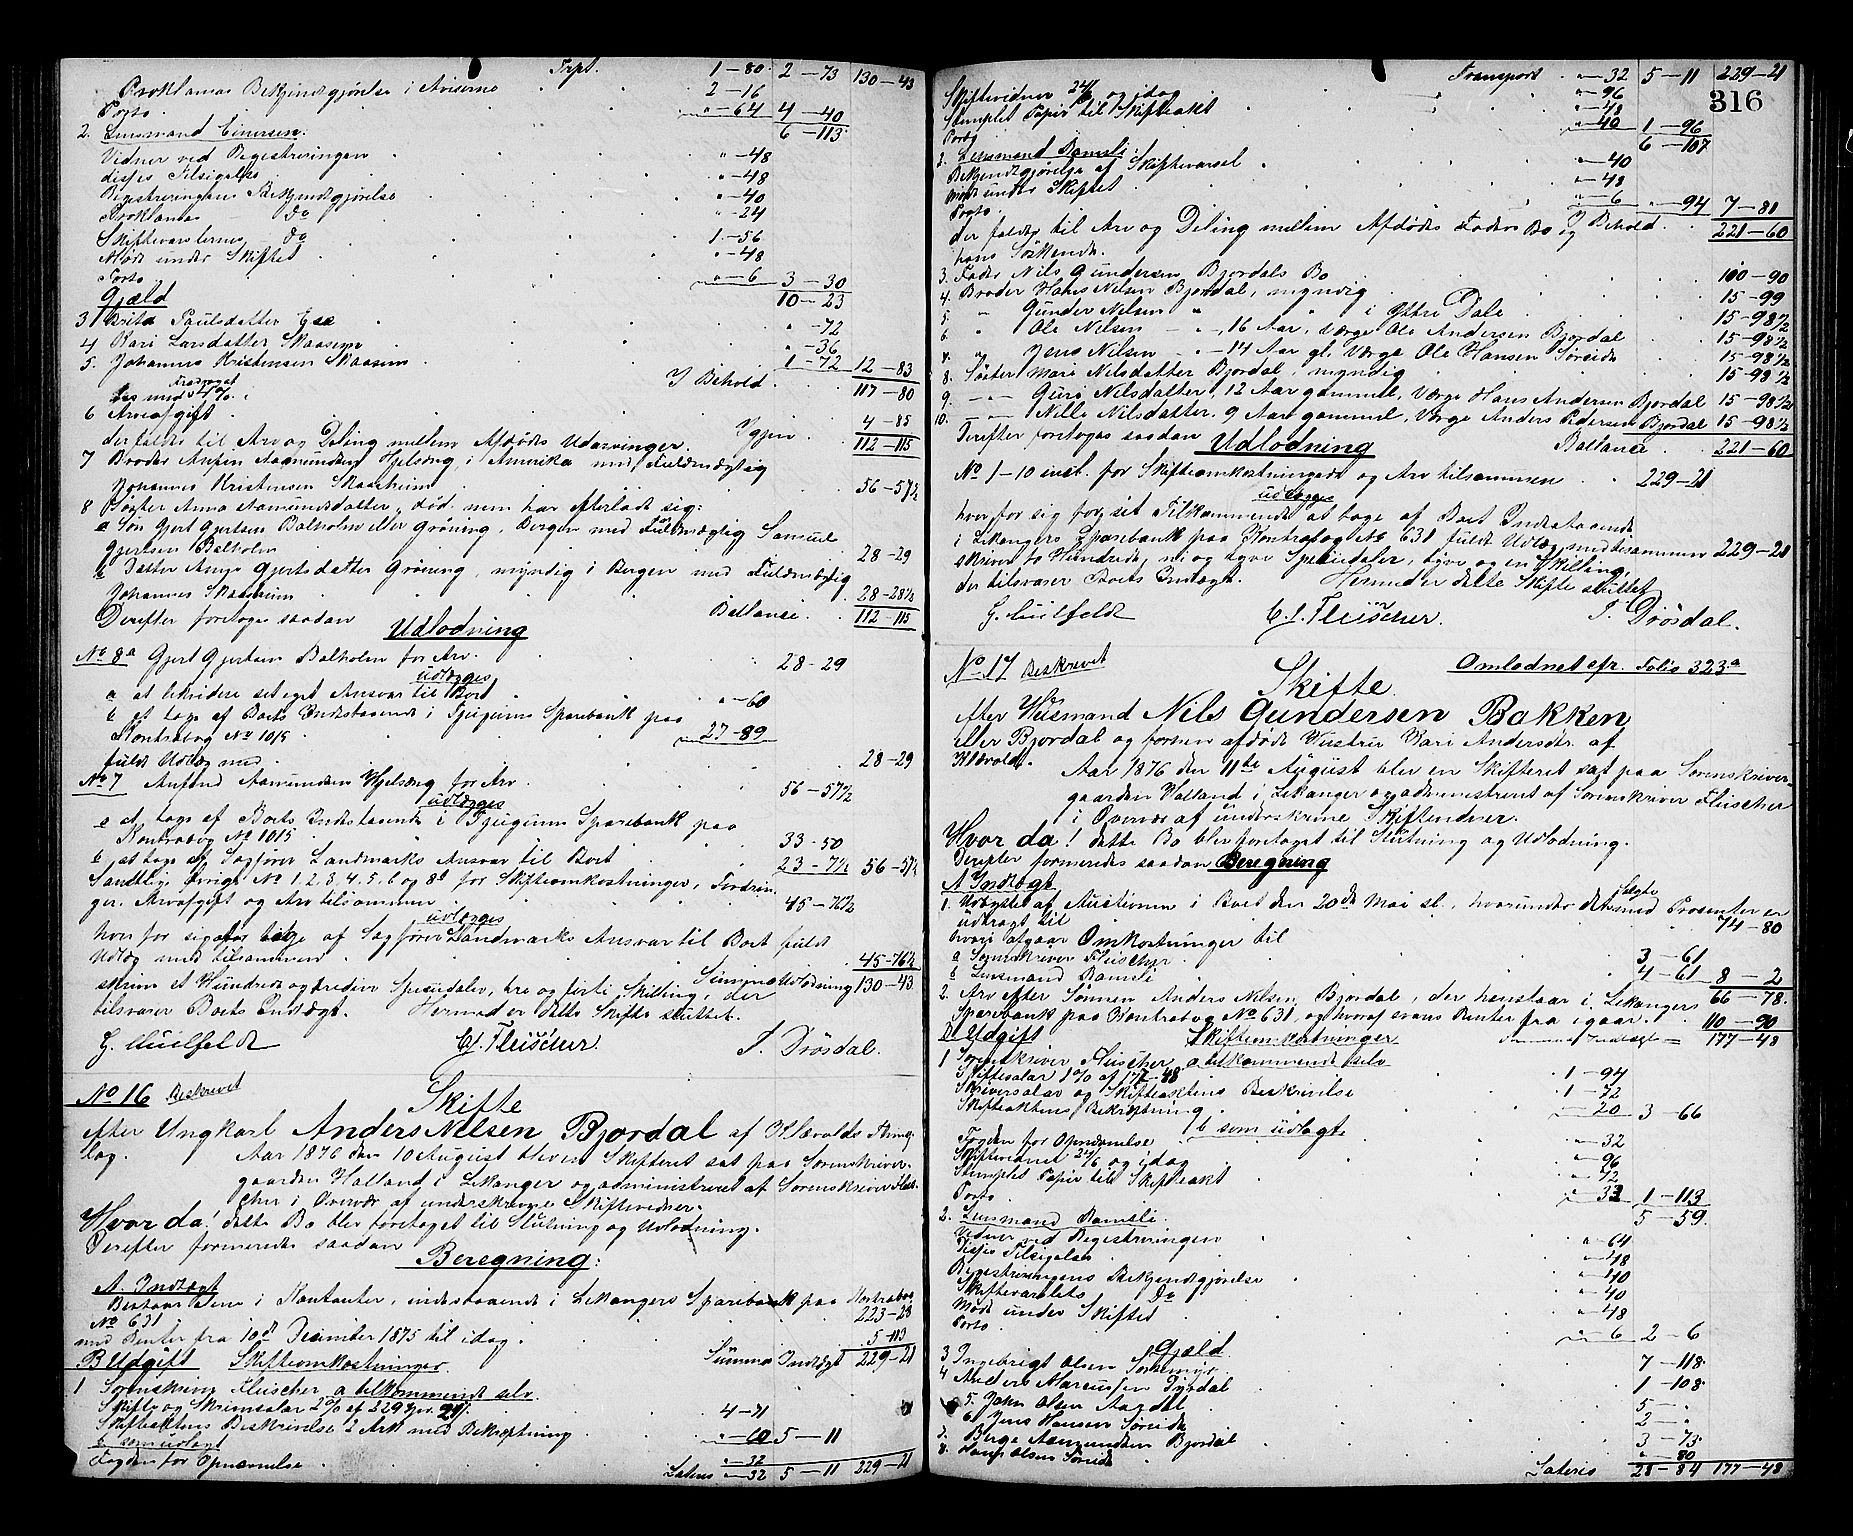 Trpt. 1-80 2-73 130-43
Proklamas Bekjendtgjørelse i Aviserne 2-16
Porto "-64 4-40
2. Lensmand Einersen: 6-113
Vidner ved Registreringen "-48
disses Tilsigelse "-48
Registreringens Bekjendtgjørelse "-40
Proklamas do "-24
Skiftevarslernes do 1-56
Møde under Skiftet "-48
Porto "-6 3-30
Gjæld 10-23
3 Brita Paulsdatter Ese "-72
4 Kari Larsdatter Skaasem "-36
5. Johannes Kristensen Skaasem 1-72 12-83
I Behold 117-80
6 Arveafgift 4-85
der falder til Arv og Deling mellem Afdødes Udarvinger Igjen 112-115
7 Broder Anfin Aamundsen Hjelseng, i Amerika med Fuldmægtig
Johannes Kristensen Skaasheim 56-57½
8 Søster Anna Aamundsdatter, død, som har efterladt sig:
a Søn Gjert Gjertsen Balholm eller Grøning, Bergen med Fuldmægtig Samuel
Gjertsen Balholm 28-29
b Datter Anna Gjertsdatter Grøning, myndig i Bergen med Fuldmægtig
Johannes Skaasheim 28-28½
Derefter foretoges saadan Ballance 112-115
Udlodning
No 8a Gjert Gjertsen Balholm for Arv 28-29
udlægges
a at likvidere sit eget Ansvar til Boet "-60
b at tage af Boets Indestaaende i Fjugums Sparebank paa
Kontrabog No 1015 27-89
fuldt Udlæg med 28-29
No 7 Anfind Aamundsen Hjelseng for Arv 56-57½
udlægges
a at tage af Boets Indestaaende i Fjugums Sparebank paa
Kontrabog No 1015 33-50
b at tage af Sagfører Landmarks Ansvar til Boet 23-7½ 56-57½
Samtlige øvrige No 1, 2, 3, 4, 5, 6 og 8b for Skifteomkostninger, Fordrin-
ger, Arveafgift og Arv tilsammen 45-76½
udlægges
hver for sig at tage af Sagfører Landmarks Ansvar til Boet fuldt
Udlæg med tilsammen 45-76½
Summa Udlodning 130-43
skriver et Hundrede og tredive Speciedaler, tre og forti Skilling, der
tilsvarer Boets Indtægt. Hermed er dette Skifte sluttet.
G. Huitfeldt C.J. Fleischer. T. Drösdal.
No 16 Beskrevet
Skifte
efter Ungkarl Anders Nilsen Bjordal af Klævolds Annex-
sog. Aar 1876 den 10 August blev en Skifteret sat paa Sorenskriver-
gaarden Halland i Lekanger og administreret af Sorenskriver Fleis-
cher i Overvær af underskrevne Skiftevidner.
Hvor da! dette Bo blev foretaget til Slutning og Udlodning.
Derefter formeredes saadan
Beregning:
A. Indtægt
Bestaar i Kontanter, indestaaende i Lekangers Sparebank paa Kontrabog
No 631 223-23
med Renter fra 10de December 1875 til idag 5-113
Summa Indtægt 229-21
B Udgift Skifteomkostninger
1 Sorenskriver Fleischer a tilkommende selv
Skifte og Skriversalar 2% af 229 Spr. 21/: 4-71
Skifteaktens Beskrivelse 2 Ark med Bekræftning "-60 5-11
b som udlagt
Fogden for Opnævnelse "-32
Lateris "-32 5-11 229-21
316
Transport "-32 5-11 229-21
Skiftevidner 24/6 og idag "-96
Stemplet Papir til Skifteakt "-48
Porto "-40 1-96
2. Lensmand Ramsli: 6-107
Bekjendtgjørelse af Skiftevarsel "-40
Møde under Skiftet "-48
Porto "-6 "-94 7-81
I Behold 221-60
der falder til Arv og Deling mellem Afdødes Faders Bo og
hans Søskende.
3. Fader Nils Gundersen Bjordals Bo 110-90
4. Broder Hans Nilsen Bjordal, myndig 15-99
5. " Gunder Nilsen " " i Yttre Dale 15-98½
6. " Ole Nilsen - " - 16 Aar, Værge Ole Andersen Bjordal 15-98½
7. " Jens Nilsen - " - 14 Aar gl. Værge Ole Hansen Søreide 15-98½
8. Søster Mari Nilsdatter Bjordal, myndig 15-98½
9. - " - Guri Nilsdatter, 12 Aar gammel, Værge Hans Andersen Bjordal 15-98½
10. - " - Nille Nilsdatter, 9 Aar gammel, Værge Anders Pedersen Bjordal 15-98½
Derefter foretoges saadan Udlodning Ballance 221-60
No 1-10 incl. for Skifteomkostninger og Arv tilsammen 229-21
udlægges
hver for sig for sit Tilkommende at tage af Boets Indestaaende
i Lekangers Sparebank paa Kontrabog No 631 fuldt Udlæg med tilsammen 229-21
skriver to Hundrede, ni og tyve Speciedaler, tyve og en Skilling,
der tilsvarer Boets Indtægt. Hermed er dette Skifte sluttet
G. Huitfeldt C.J. Fleischer. T. Drösdal.
No 17 Beskrevet Omlodnet cfr. Folio 323a
Skifte
efter Husmand Nils Gundersen Bakken
eller Bjordal og forhen afdøde Hustru Kari Andersdtr. af
Klævold. Aar 1876 den 11te August blev en Skifteret sat paa Sorenskriver-
gaarden Halland i Lekanger og administreret af Sorenskriver Fleischer
i Overvær af underskrevne Skiftevidner.
Hvor da! dette Bo blev foretaget til Slutning og Udlodning.
Derefter formeredes saadan Beregning
A Indtægt
1. Udbyttet af Auctionen i Boet den 20de Mai sl., hvorunder det Solgte med Prosenter er
udbragt til 74-80
hvori afgaar Omkostninger til
a Sorenskriver Fleischer 3-61
b Lensmand Ramsli 4-61 8-2
66-78
2. Arv efter Sønnen Anders Nilsen Bjordal, der henstaar i Lekangers
Sparebank paa Kontrabog No 631, og hvoraf svares Renter fra igaar 110-90
Summa Indtægt = 177-48
B Udgift Skifteomkostninger
1 Sorenskriver Fleischer a tilkommende selv
Skiftesalar 1% af 177-48 1-94
Skriversalar og Skifteaktens Beskrivelse 1-72
Skifteaktens Bekræftning "-20 3-66
b som udlagt
Fogden for Opnævnelse "-32
Skiftevidner 24/6 og idag "-96
Stemplet Papir til Skifteakt "-72
Porto "-33 1-113
2. Lensmand Ramsli. 5-59
Vidner ved Registreringen "-64
Disses Tilsigelse "-48
Registreringens Bekjendtgjørelse "-40
Skiftevarslets do "-40
Møde under Skiftet "-48
Porto "-6 2-6
Gjæld 7-118
3 Ingebrigt Olsen
4 Anders Marcussen 1-108
5. John Olsen Aardal 5-"
6. Jens Hansen Søreide 2-"
7. Børge Aamundsen Bjordal 3-73
8. Hans Olsen Søreide "-80
Lateris 28-84 177-48